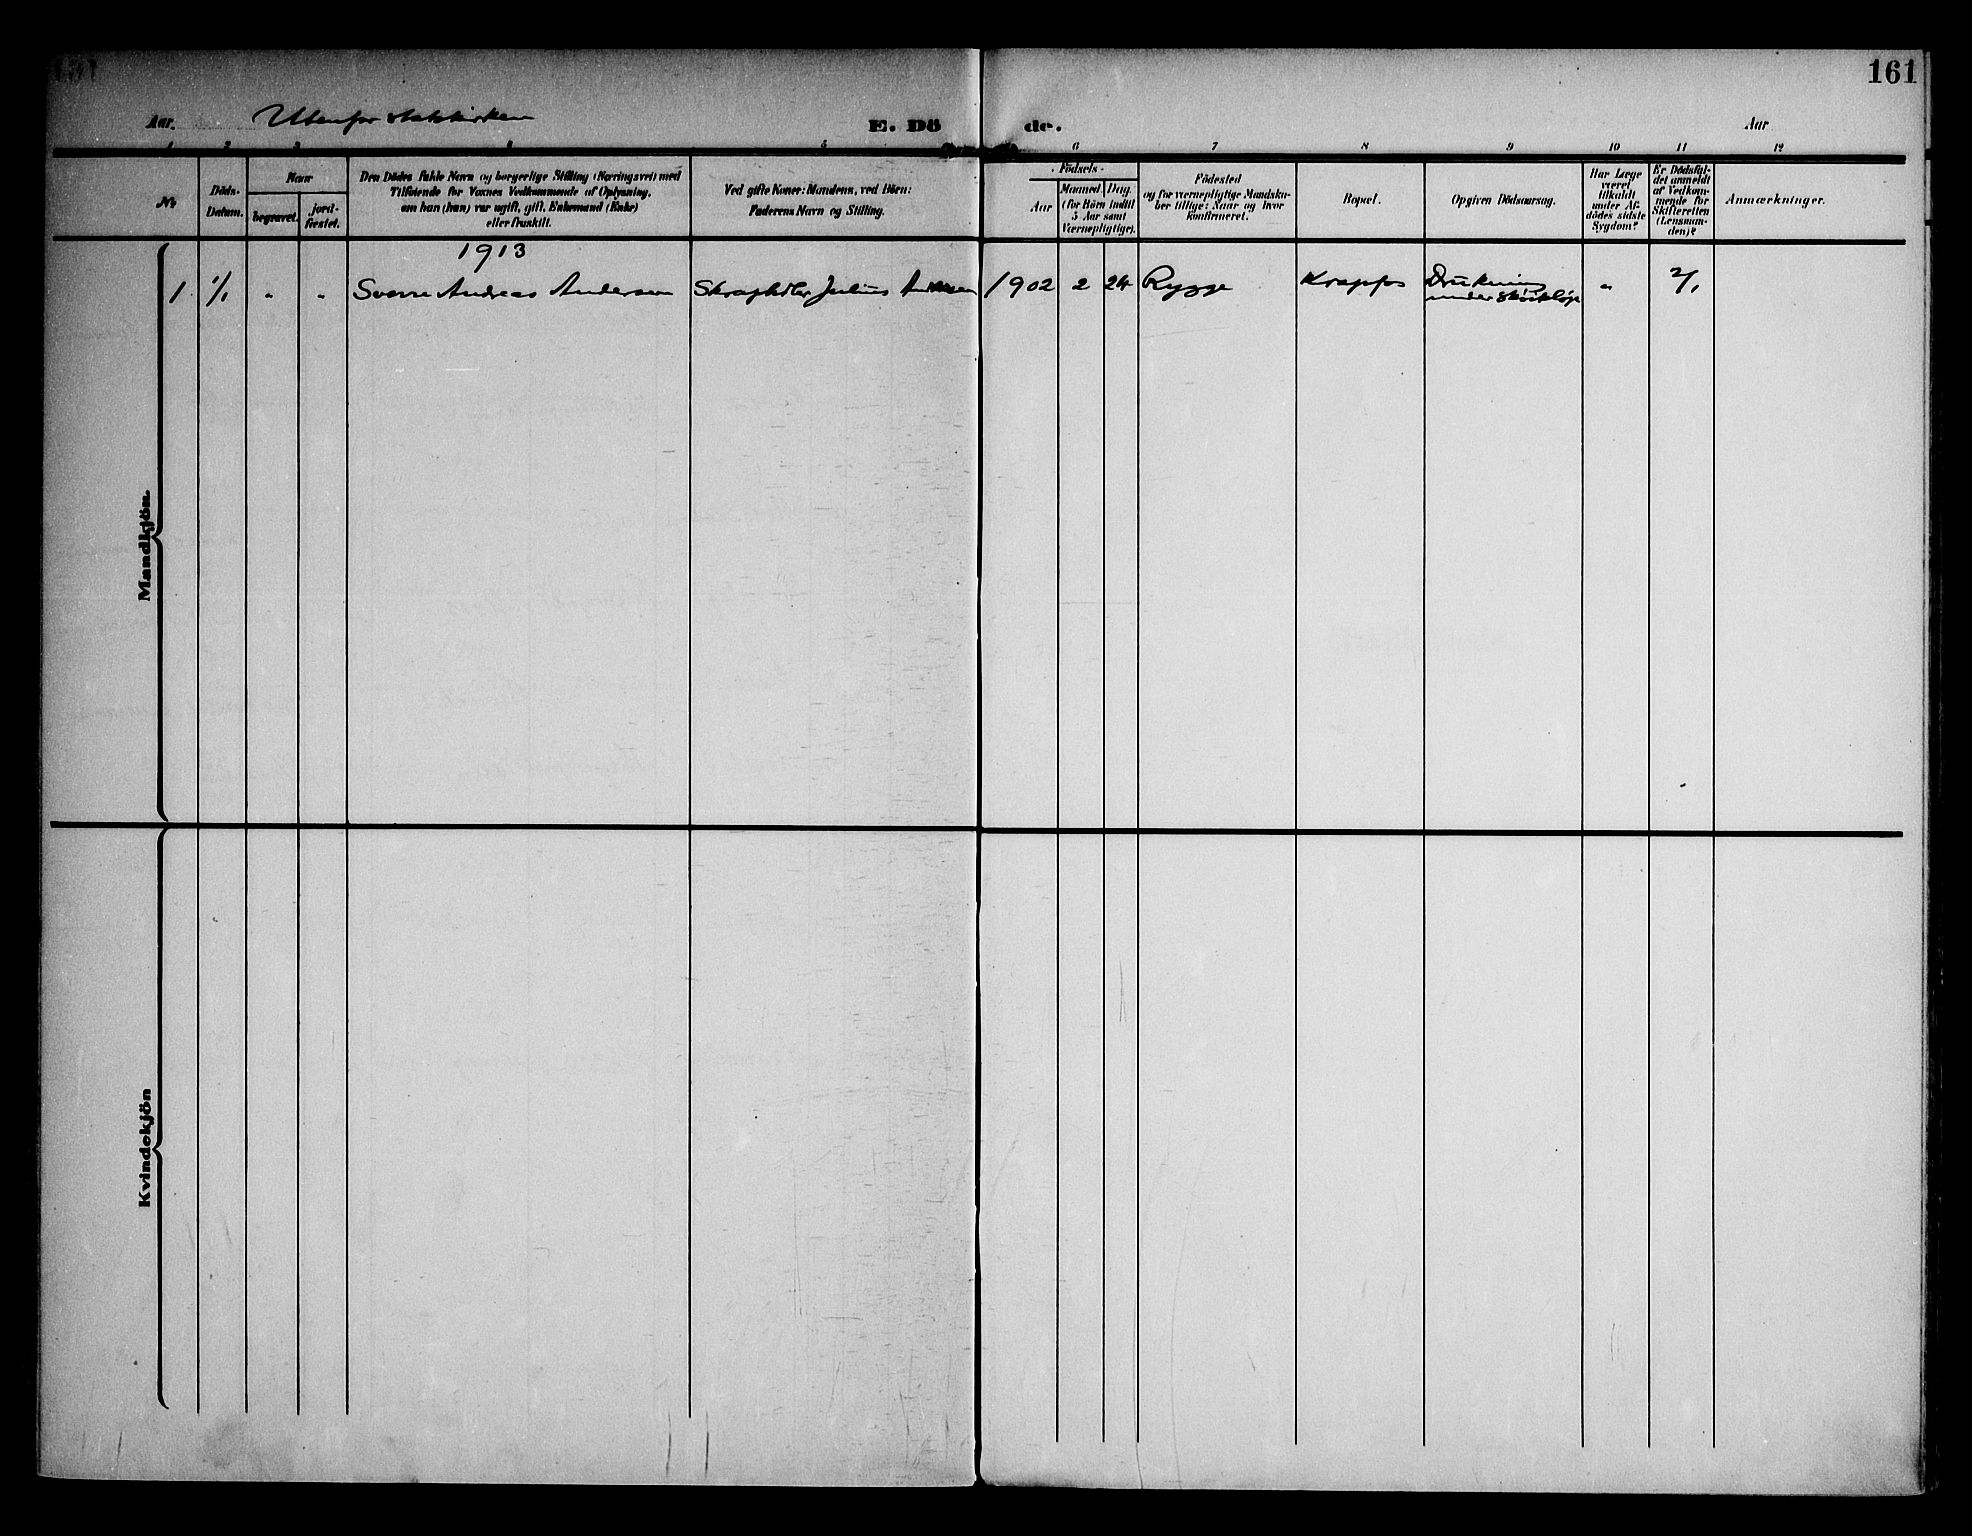 161
Aar. Utenfor statskirken E. Dö de. Aar
1 2 3 4 5 6 7 8 9 10 11 12
No
Döds-
Datum.
Naar
begravet.
jord-
fæstet.
Den Dödes fulde Navn og borgerlige Stilling (Næringsvei) med
Tilföiende for Voxnes Vedkommende af Oplysning,
om han (hun) var ugift, gift, Enkemand (Enke)
eller fraskilt.
Ved gifte Koner: Mandens, ved Börn:
Faderens Navn og Stilling.
Födsels-
Aar
Maaned. Dag.
(for Börn indtil
5 Aar samt
Værnepligtige).
Födested
og for værnepligtige Mandska-
ber tillige: Naar og hvor
konfirmeret.
Bopæl.
Opgiven Dödsaarsag.
Har Læge
været
tilkaldt
under Af-
dödes sidste
Sygdom?
Er Dödsfal-
det anmeldt
af Vedkom-
mende for
Skifteretten
(Lensman-
den)?
Anmærkninger.
1913
1 1/1 " " Sverre Andreas Andersen Skraphdler Julius Andersen 1902 2 24 Rygge Krapfos Drukning " 2/1
under
Mandkjön.
Kvindekjön